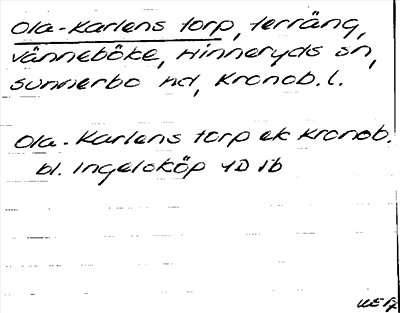 Ola-Karlens torp, terräng,
Vänneböke, Hinneryds sn,
Sunnerbo hd, Kronob. l.
Ola-Karlens torp ek Kronob.
bl. Ingelsköp 4D 1b